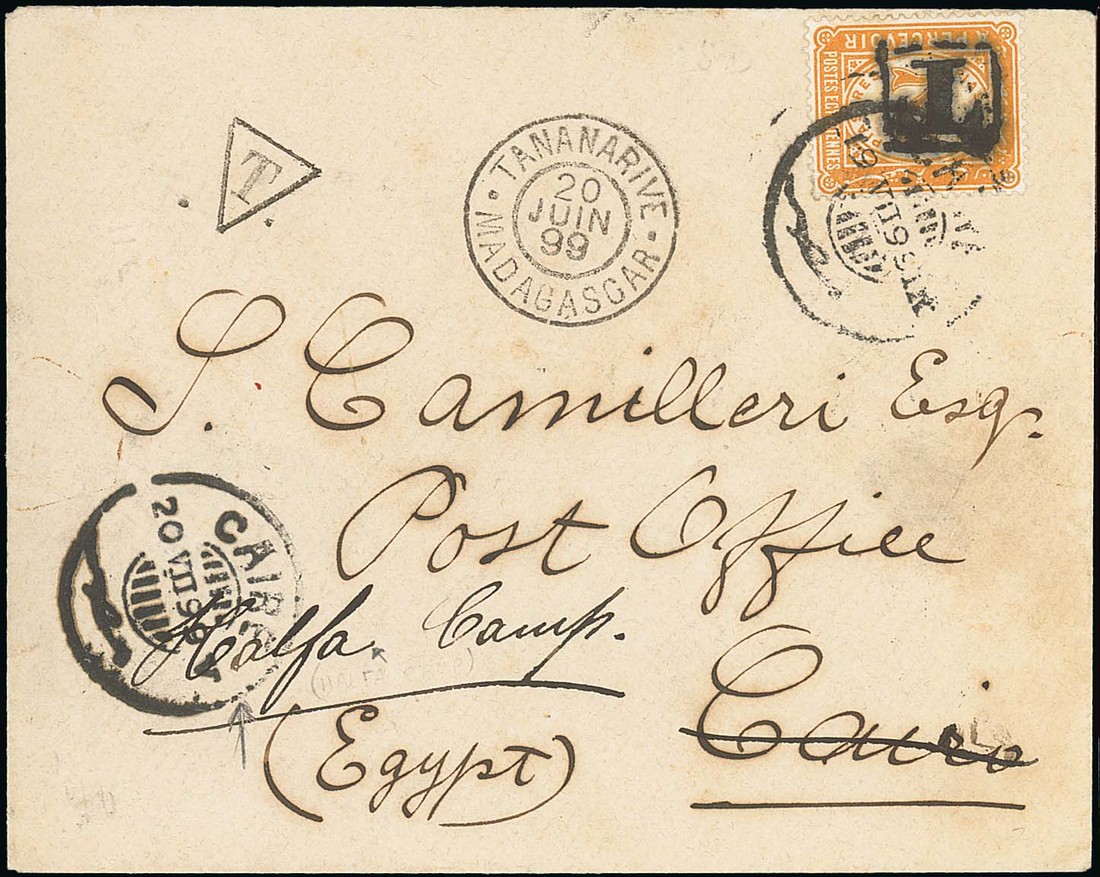 A PERCEVOIR
POSTES EGYPTIENNES
T
T
TANANARIVE
20
JUIN
99
MADAGASCAR
S. Camilleri Esq.
Post Office
CAIRO
20 VII 9
Halfa Camp.
(HALFA CAMP)
(Egypt)
Cairo